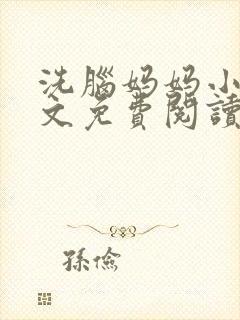 洗腦媽媽小
文免費閱讀
孫儉